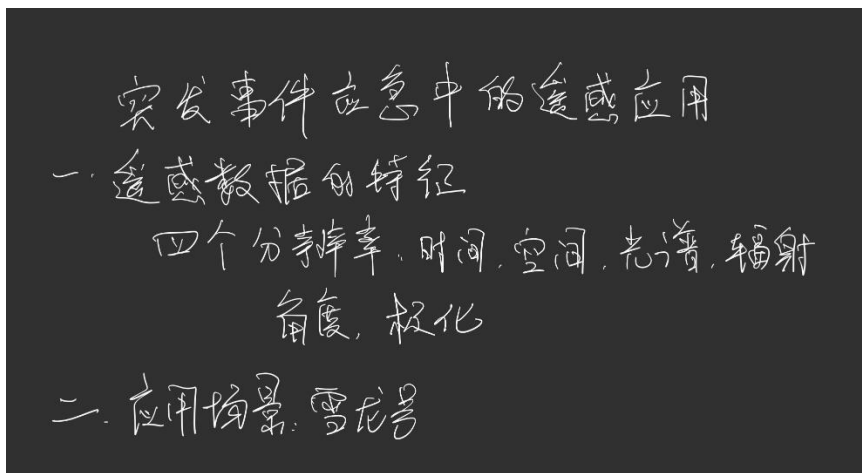 突发事件应急中的遥感应用
一.遥感数据的特征
四个分辨率.时间.空间.光谱.辐射
角度.极化
二.应用场景:雪龙号